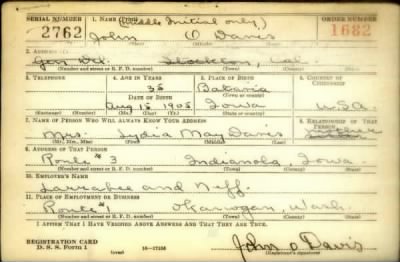 SERIAL NUMBER 1. NAME (Print) (Middle Initial only.) ORDER NUMBER
2762 John O Davis 1682
(First) (Middle) (Last)
2. ADDRESS (Print)
Gen Del. Stockton, Cal.
(Number and street or R. F. D. number) (Town) (County) (State)
3. TELEPHONE 4. AGE IN YEARS 5. PLACE OF BIRTH 6. COUNTRY OF CITIZENSHIP
35 Batavia
DATE OF BIRTH (Town or county)
Aug 15 1905 Iowa U.S.A.
(Exchange) (Number) (Mo.) (Day) (Yr.) (State or country)
7. NAME OF PERSON WHO WILL ALWAYS KNOW YOUR ADDRESS 8. RELATIONSHIP OF THAT PERSON
Mrs. Lydia May Davis mother
(Mr., Mrs., Miss) (First) (Middle) (Last)
9. ADDRESS OF THAT PERSON
Route #3 Indianola, Iowa
(Number and street or R. F. D. number) (Town) (County) (State)
10. EMPLOYER'S NAME
Larrabee and Neff.
11. PLACE OF EMPLOYMENT OR BUSINESS
Route #1 Okanogan, Wash.
(Number and street or R. F. D. number) (Town) (County) (State)
I AFFIRM THAT I HAVE VERIFIED ABOVE ANSWERS AND THAT THEY ARE TRUE.
REGISTRATION CARD
D. S. S. Form 1 (over) 16—17105 John O Davis
(Registrant's signature)